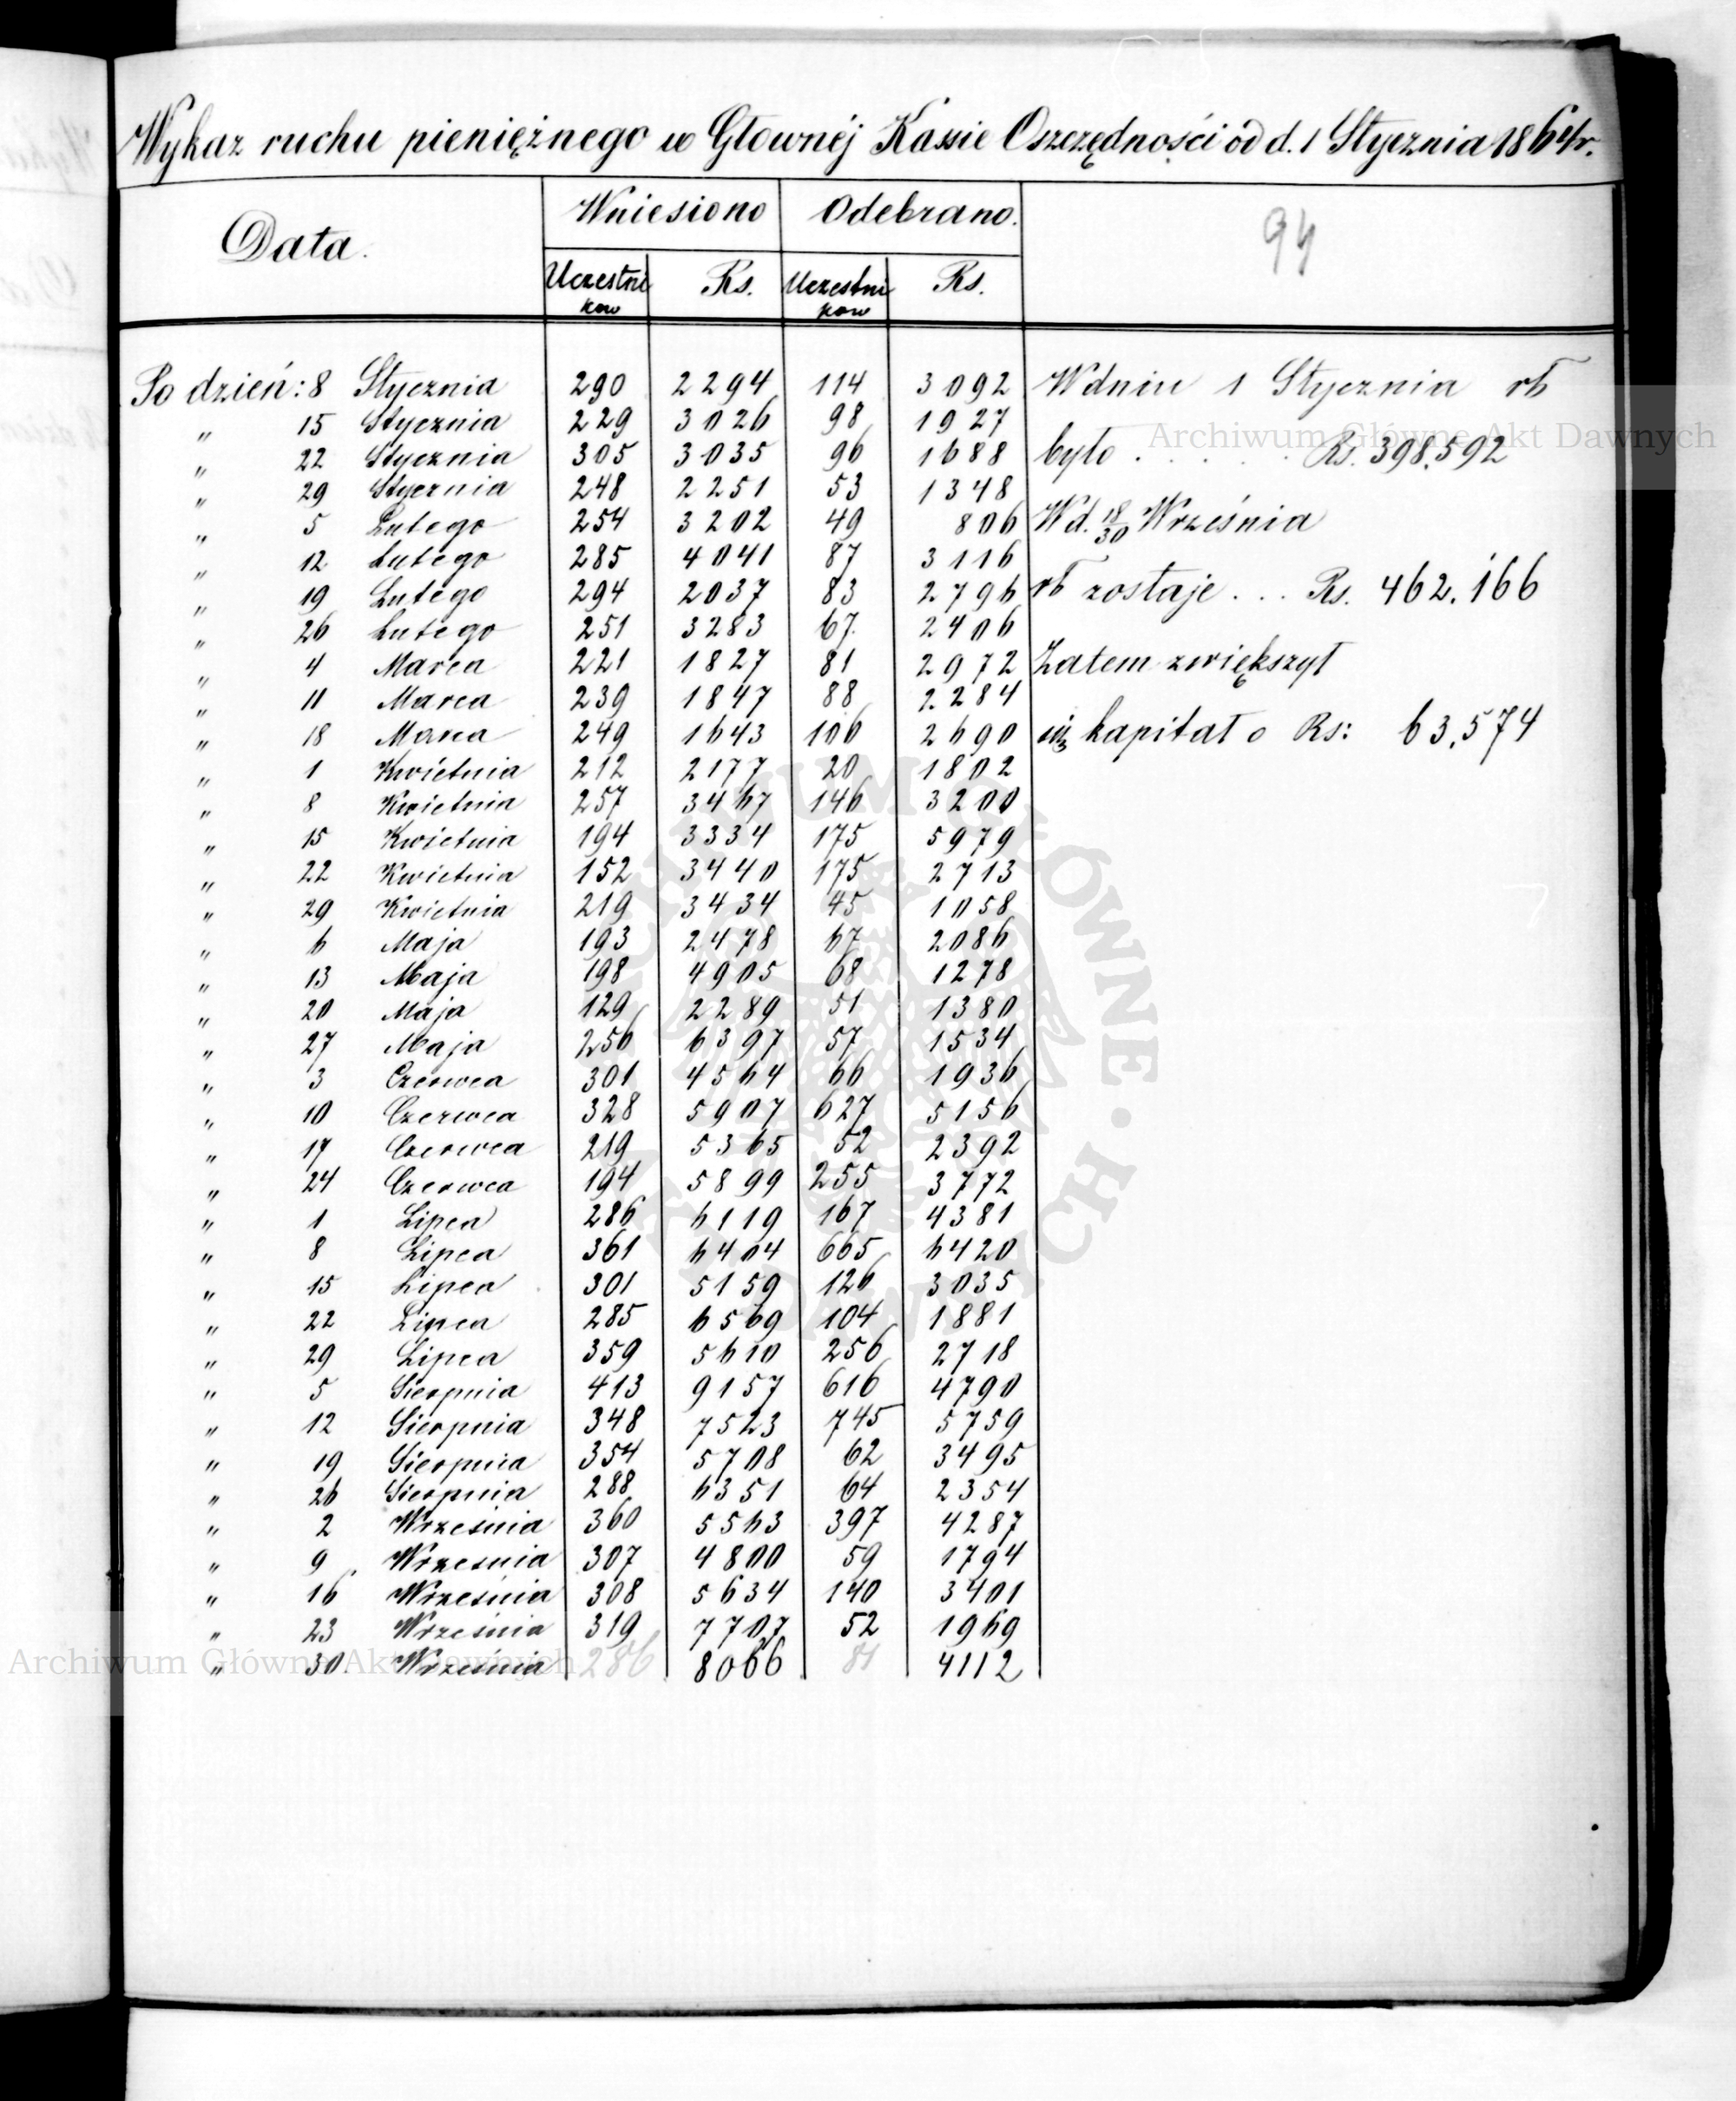 Wykaz ruchu pieniężnego w Głownéj Kassie Oszczędności od d. 1 Stycznia 1864r.
Data. Wniesiono Odebrano. 94
Uczestni Rs. Uczestni Rs.
kow kow
Po dzień: 8 Stycznia 290 2294 114 3092 W dniu 1 Stycznia rb
" 15 Stycznia 229 3026 98 1927
" 22 Stycznia 305 3035 96 1688 było . . . . . Rs. 398,592
" 29 Stycznia 248 2251 53 1348
" 5 Lutego 254 3202 49 806 W d. 18/30 Września
" 12 Lutego 285 4041 87 3116
" 19 Lutego 294 2037 83 2796 rb zostaje . . . Rs. 462.166
" 26 Lutego 251 3283 67. 2406
" 4 Marca 221 1827 81 2972 Zatem zwiększył
" 11 Marca 239 1847 88 2284
" 18 Marca 249 1643 106 2690 się kapitał o Rs: 63,574
" 1 Kwietnia 212 2177 20 1802
" 8 Kwietnia 257 3467 146 3200
" 15 Kwietnia 194 3334 175 5979
" 22 Kwietnia 152 3440 175 2713
" 29 Kwietnia 219 3434 45 1058
" 6 Maja 193 2478 67 2086
" 13 Maja 198 4905 68 1278
" 20 Maja 129 2289 51 1380
" 27 Maja 256 6397 57 1534
" 3 Czerwca 301 4564 66 1936
" 10 Czerwca 328 5907 627 5156
" 17 Czerwca 219 5365 52 2392
" 24 Czerwca 194 5899 255 3772
" 1 Lipca 286 6119 167 4381
" 8 Lipca 361 6404 665 6420
" 15 Lipca 301 5159 126 3035
" 22 Lipca 285 6569 104 1881
" 29 Lipca 359 5610 256 2718
" 5 Sierpnia 413 9157 616 4790
" 12 Sierpnia 348 7523 745 5759
" 19 Sierpnia 354 5708 62 3495
" 26 Sierpnia 288 6351 64 2354
" 2 Września 360 5563 397 4287
" 9 Września 307 4800 59 1794
" 16 Września 308 5634 140 3401
" 23 Września 319 7707 52 1969
" 30. Września 286 8066 81 4112
Archiwum Główne Akt Dawnych
Archiwum Główne Akt Dawnych